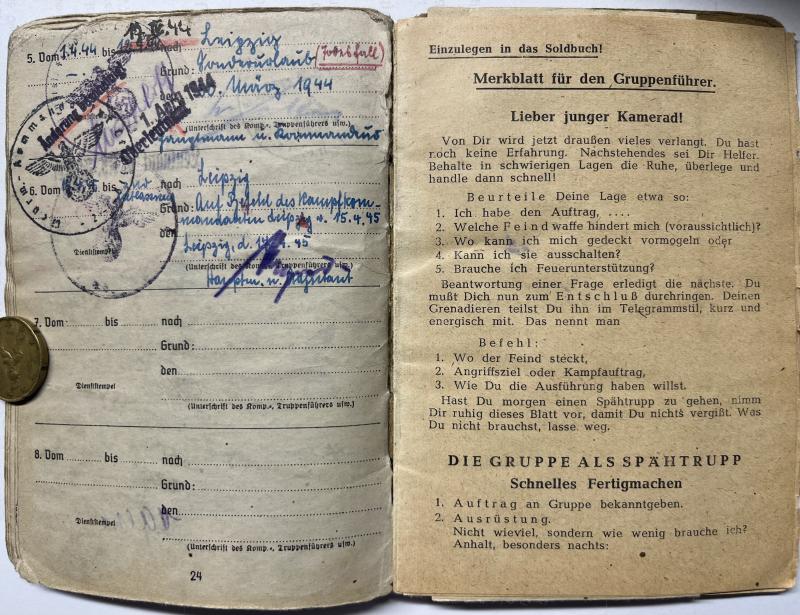 5. Vom 1.4.44 bis 14.IV.44 nach Leipzig
Grund: Sonderurlaub (Todesfall)
den März 1944
1. April 1944
(Unterschrift des Komp.-, Truppenführers usw.)
Hauptmann u.
6. Vom bis nach Leipzig
Grund: Auf Befehl des Kampfkom-
mandanten Leipzig v. 15.4.45
den Leipzig, d. 45
Dienststempel
(Unterschrift des Komp.-, Truppenführers usw.)
Hauptm. u. Adjutant
7. Vom bis nach
Grund:
den
Dienststempel
(Unterschrift des Komp.-, Truppenführers usw.)
8. Vom bis nach
Grund:
den
Dienststempel
(Unterschrift des Komp.-, Truppenführers usw.)
24
Einzulegen in das Soldbuch!
Merkblatt für den Gruppenführer.
Lieber junger Kamerad!
Von Dir wird jetzt draußen vieles verlangt. Du hast
noch keine Erfahrung. Nachstehendes sei Dir Helfer.
Behalte in schwierigen Lagen die Ruhe, überlege und
handle dann schnell!
Beurteile Deine Lage etwa so:
1. Ich habe den Auftrag, ....
2. Welche Feindwaffe hindert mich (voraussichtlich)?
3. Wo kann ich mich gedeckt vormogeln oder
4. Kann ich sie ausschalten?
5. Brauche ich Feuerunterstützung?
Beantwortung einer Frage erledigt die nächste. Du
mußt Dich nun zum Entschluß durchringen. Deinen
Grenadieren teilst Du ihn im Telegrammstil, kurz und
energisch mit. Das nennt man
Befehl:
1. Wo der Feind steckt,
2. Angriffsziel oder Kampfauftrag,
3. Wie Du die Ausführung haben willst.
Hast Du morgen einen Spähtrupp zu gehen, nimm
Dir ruhig dieses Blatt vor, damit Du nichts vergißt. Was
Du nicht brauchst, lasse weg.
DIE GRUPPE ALS SPÄHTRUPP
Schnelles Fertigmachen
1. Auftrag an Gruppe bekanntgeben.
2. Ausrüstung.
Nicht wieviel, sondern wie wenig brauche ich?
Anhalt, besonders nachts: